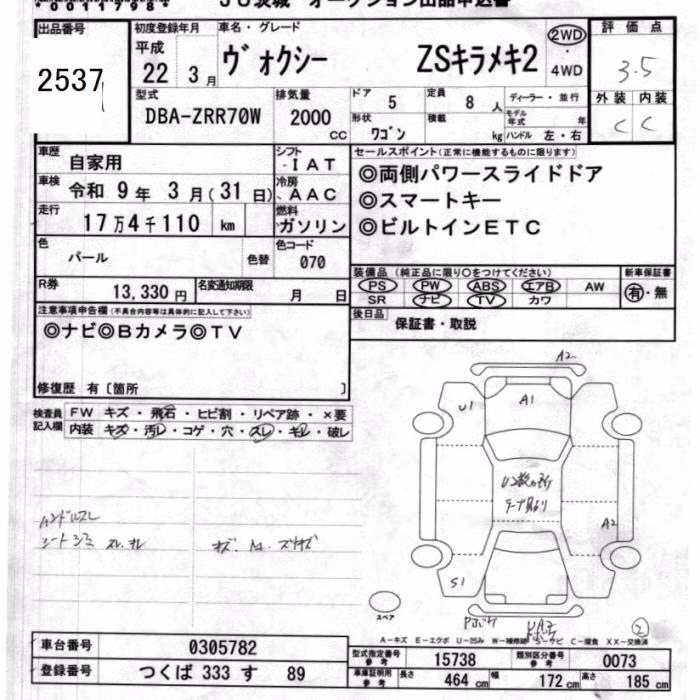 出品番号
2537
初度登録年月
平成
22 3月
車名・グレード
ヴォクシー ZSキラメキ2
2WD
・
4WD
評価点
3.5
外装 内装
C C
型式
DBA-ZRR70W
排気量
2000
CC
ドア
5
定員
8 人
形状
ワゴン
積載
kg
ディーラー・並行
モデル年式 年
ハンドル 左・右
車歴
自家用
車検
令和 9年 3月(31日)
走行
17万4千110 km
シフト
IAT
冷房
AAC
燃料
ガソリン
色
パール
色替
色コード
070
R券
13,330円
名変通知期限
月 日
セールスポイント(正常に機能するものに限ります)
◎両側パワースライドドア
◎スマートキー
◎ビルトインETC
装備品 (純正品に限り○をつけてください)
PS PW ABS エアB AW
SR ナビ TV カワ
新車保証書
有・無
後日品
保証書・取説
注意事項申告欄(不具合内容等は具体的に記入して下さい)
◎ナビ◎Bカメラ◎TV
修復歴 有〔箇所 〕
検査員
記入欄
FW キズ・飛石・ヒビ割・リペア跡・×要
内装 キズ・汚レ・コゲ・穴・スレ・キレ・破レ
ハンドルスレ
シートシミ
A2
U1
A1
A2
S1
スペア
2
A-キズ E-エクボ U-凹み W-補修跡 S-サビ C-腐食 XX-交換済
車台番号
0305782
登録番号
つくば 333 す 89
型式指定番号
参考
15738
類別区分番号
参考
0073
車庫証明用
参考
長さ 464 cm
幅 172 cm
高さ 185 cm